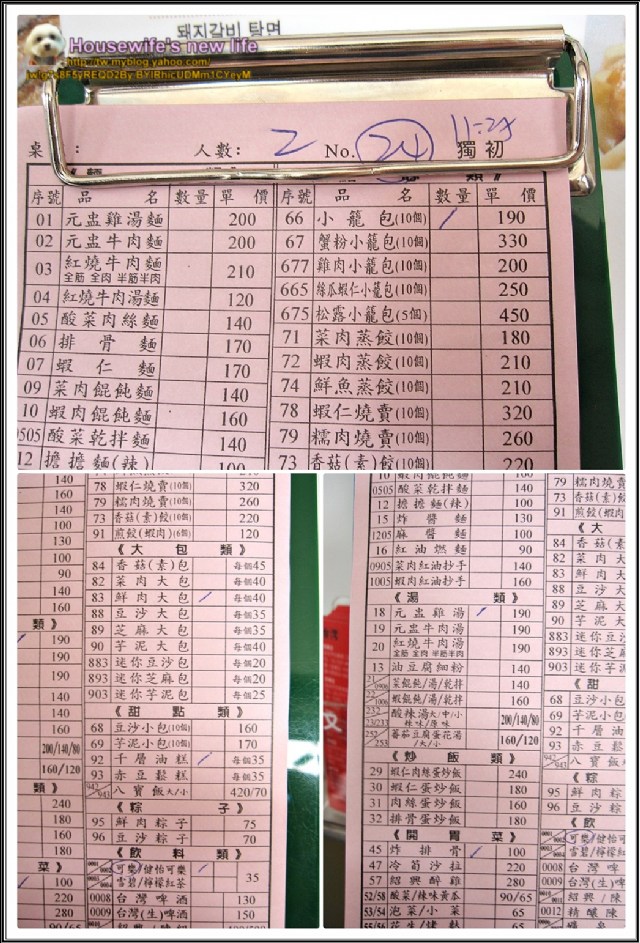 돼지갈비 탕면
Housewife's new life
http://tw.myblog.yahoo.com/
桌 : 人數: 2 No. 24 11:24 獨初
序號 品 名 數量 單 價 序號 品 名 數量 單 價
01 元盅雞湯麵 200 66 小籠包(10個) 190
02 元盅牛肉麵 200 67 蟹粉小籠包(10個) 330
03 紅燒牛肉麵 全筋 全肉 半筋半肉 210 677 雞肉小籠包(10個) 200
04 紅燒牛肉湯麵 120 665 絲瓜蝦仁小籠包(10個) 250
05 酸菜肉絲麵 140 675 松露小籠包(5個) 450
06 排骨麵 170 71 菜肉蒸餃(10個) 180
07 蝦仁麵 170 72 蝦肉蒸餃(10個) 210
09 菜肉餛飩麵 140 74 鮮魚蒸餃(10個) 210
10 蝦肉餛飩麵 160 78 蝦仁燒賣(10個) 320
0505 酸菜乾拌麵 140 79 糯肉燒賣(10個) 260
12 擔擔麵(辣) 100 73 香菇(素)餃(10個) 220
140 78 蝦仁燒賣(10個) 320
160 79 糯肉燒賣(10個) 260
140 73 香菇(素)餃(10個) 220
100 91 煎餃(蝦肉)(6個) 120
130 《大包類》
100 84 香菇(素)包 每個45
90 82 菜肉大包 每個40
140 83 鮮肉大包 每個40
160 88 豆沙大包 每個35
類》 89 芝麻大包 每個35
190 90 芋泥大包 每個35
190 883 迷你豆沙包 每個20
190 893 迷你芝麻包 每個20
140 903 迷你芋泥包 每個25
《甜點類》
140 68 豆沙小包(10個) 160
140 69 芋泥小包(10個) 170
200/140/80 92 千層油糕 每個35
160/120 93 赤豆鬆糕 每個35
類》 942/943 八寶飯大/小 420/70
240 《粽子》
180 95 鮮肉粽子 75
160 96 豆沙粽子 70
180 《飲料類》
菜》 0001 0002 可樂/健怡可樂 35
100 雪碧/檸檬紅茶
220 0008 台灣啤酒 130
280 0009 台灣(生)啤酒 150
90/65
10 蝦肉餛飩麵 160
0505 酸菜乾拌麵 140 79 糯肉燒賣
12 擔擔麵(辣) 100 73 香菇(素)
15 炸醬麵 130 91 煎餃(蝦肉
1205 麻醬麵 100 《大
16 紅油燃麵 90 84 香菇(素
0905 菜肉紅油抄手 140 82 菜肉大
1005 蝦肉紅油抄手 160 83 鮮肉大
《湯類》 88 豆沙大
18 元盅雞湯 190 89 芝麻大
19 元盅牛肉湯 190 90 芋泥大
20 紅燒牛肉湯 全筋 全肉 半筋半肉 190 883 迷你豆沙
13 油豆腐細粉 140 893 迷你芝麻
21/1906 菜餛飩/湯/乾拌 140 903 迷你芋泥
22/1006 蝦餛飩/湯/乾拌 140 《甜
酸辣湯大/中/小 辣味/原味 200/140/80 68 豆沙小包
252/253 蕃茄豆腐蛋花湯/大/小 160/120 69 芋泥小包
92 千層油
《炒飯類》 93 赤豆鬆
29 蝦仁肉絲蛋炒飯 240 942/943 八寶飯
30 蝦仁蛋炒飯 180 《粽
31 肉絲蛋炒飯 160 95 鮮肉粽
32 排骨蛋炒飯 180 96 豆沙粽
《開胃菜》 《飲
45 炸排骨 100 可樂/健怡
47 冷筍沙拉 220 雪碧/檸檬
57 紹興醉雞 280 0008 台灣啤
52/58 酸菜/辣味黃瓜 90/65 0009 台灣(生)
53/54 泡菜/小菜 65 0012 精釀陳
55/56 花生/烤麩 65